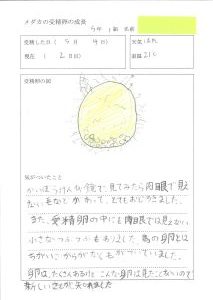 メダカの受精卵の成長
5年 1組 名前
受精した日( 5月 9日)
天気 はれ
現在 ( 2日目)
水温 21℃
受精卵の図
気がついたこと
かいぼうけんび鏡で見てみたら肉眼で見
えない毛など
とてもおどろきました。
また、受精卵の中にも肉眼では見えない
小さなつぶつぶもありました。鳥の卵とは
ちがい、からがなく
ついていました。
卵は、たくさんあるけど こんな卵は見たことないので
新しいことが 知れました